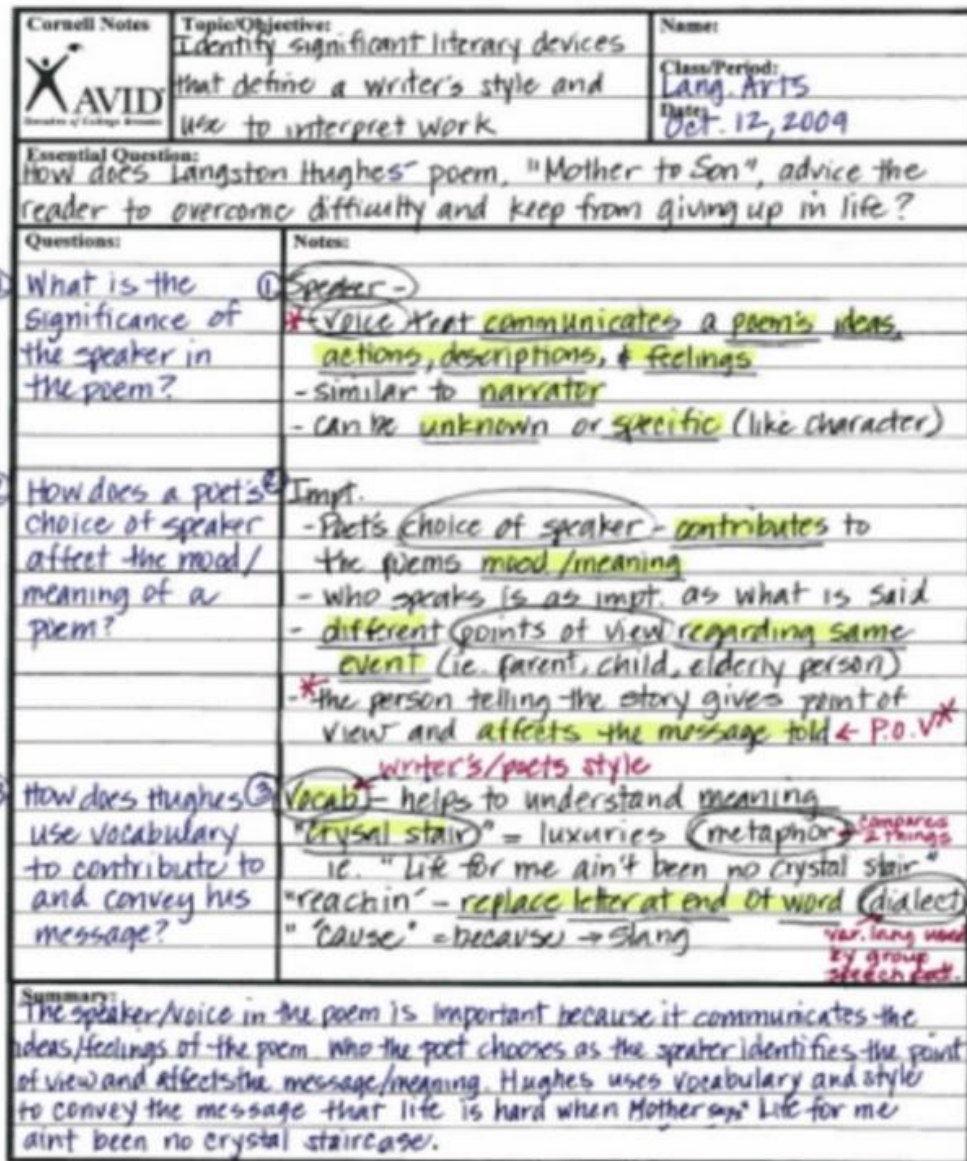 Cornell Notes
AVID
Decades of College Dreams
Topic/Objective:
Identify significant literary devices
that define a writer's style and
use to interpret work
Name:
Class/Period:
Lang. Arts
Date:
Oct. 12, 2009
Essential Question:
How does Langston Hughes' poem, "Mother to Son", advice the
reader to overcome difficulty and keep from giving up in life?
Questions:
① What is the
significance of
the speaker in
the poem?
② How does a poet's
choice of speaker
affect the mood/
meaning of a
poem?
③ How does Hughes
use vocabulary
to contribute to
and convey his
message?
Notes:
① Speaker -
* - voice that communicates a poem's ideas,
actions, descriptions, & feelings
- similar to narrator
- can be unknown or specific (like character)
② Impt.
- Poet's choice of speaker - contributes to
the poems mood/meaning
- who speaks is as impt. as what is said
- different points of view regarding same
event (ie. parent, child, elderly person)
- * the person telling the story gives point of
view and affects the message told ← P.O.V *
writer's/poets style
③ Vocab - helps to understand meaning
"crysal stair" = luxuries (metaphor) compares
2 things
ie. "Life for me ain't been no crystal stair"
"reachin" - replace letter at end of word (dialect)
" 'cause" = because → slang
var. lang used
by group
speech
Summary:
The speaker/voice in the poem is important because it communicates the
ideas/feelings of the poem. Who the poet chooses as the speaker identifies the point
of view and affects the message/meaning. Hughes uses vocabulary and style
to convey the message that life is hard when Mother says "Life for me
aint been no crystal staircase.